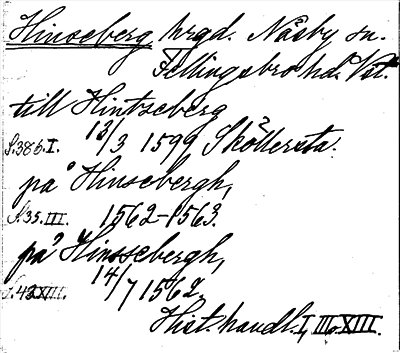 Hinseberg hrgd. Näsby sn.
Fellingsbro hd. Vst.
till Hintseberg
S. 386. I. 13/3 1599 Sköllersta.
på Hinsebergh,
S. 35. III. 1562-1563.
på Hinssebergh,
S. 42 XIII. 14/7 1562.
Hist. handl. I, III o XIII.